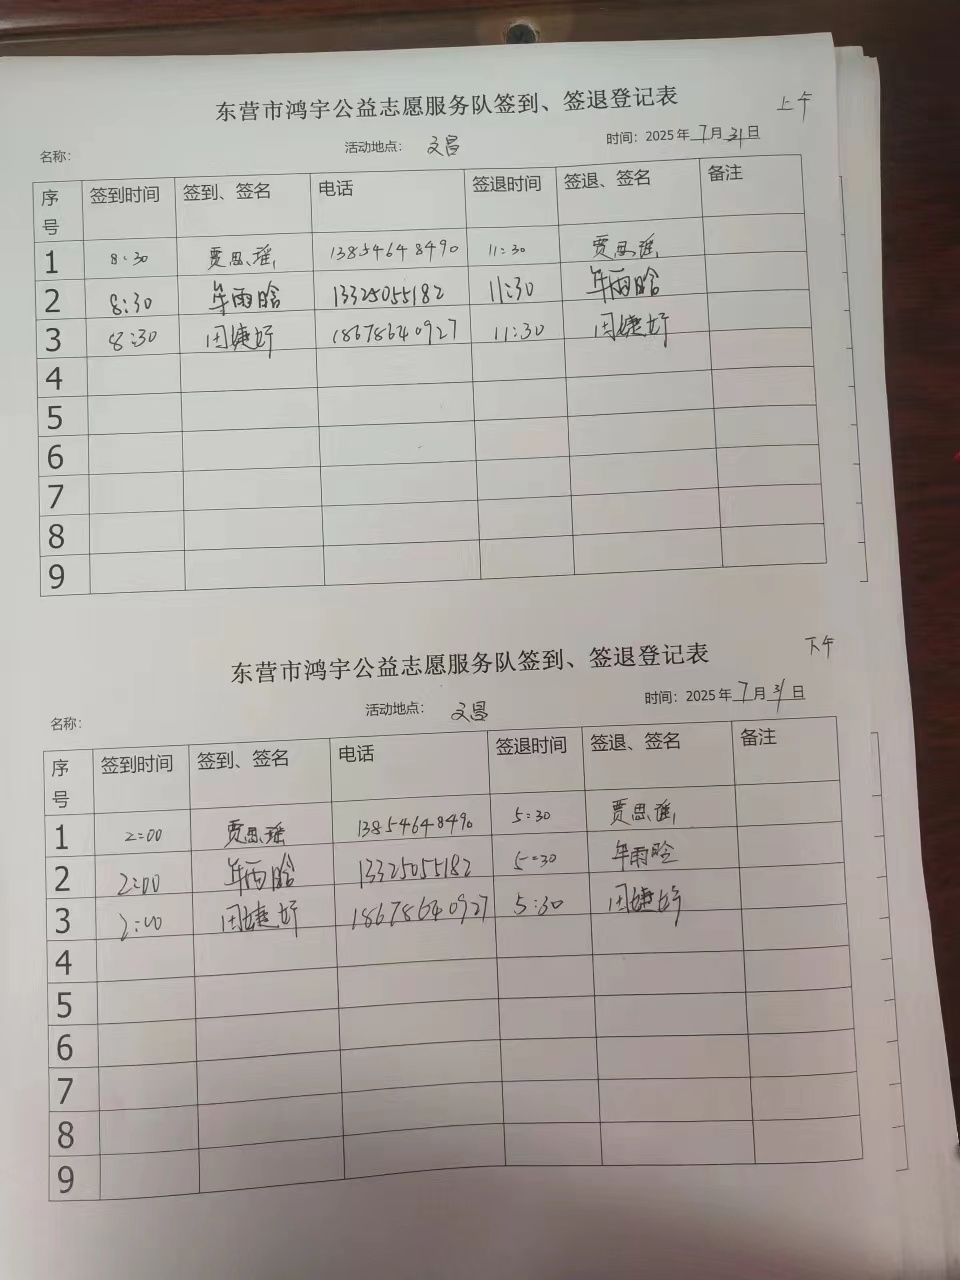 上午
东营市鸿宇公益志愿服务队签到、签退登记表
名称： 活动地点： 文昌 时间：2025年7月31日
序号 签到时间 签到、签名 电话 签退时间 签退、签名 备注
1 8:30 贾思瑶 13854648490 11:30 贾思瑶
2 8:30 年雨晗 13325055182 11:30 年雨晗
3 8:30 田婕妤 18678640927 11:30 田婕妤
4
5
6
7
8
9
下午
东营市鸿宇公益志愿服务队签到、签退登记表
名称： 活动地点： 文昌 时间：2025年7月31日
序号 签到时间 签到、签名 电话 签退时间 签退、签名 备注
1 2:00 贾思瑶 13854648490 5:30 贾思瑶
2 2:00 年雨晗 13325055182 5:30 年雨晗
3 2:00 田婕妤 18678640927 5:30 田婕妤
4
5
6
7
8
9